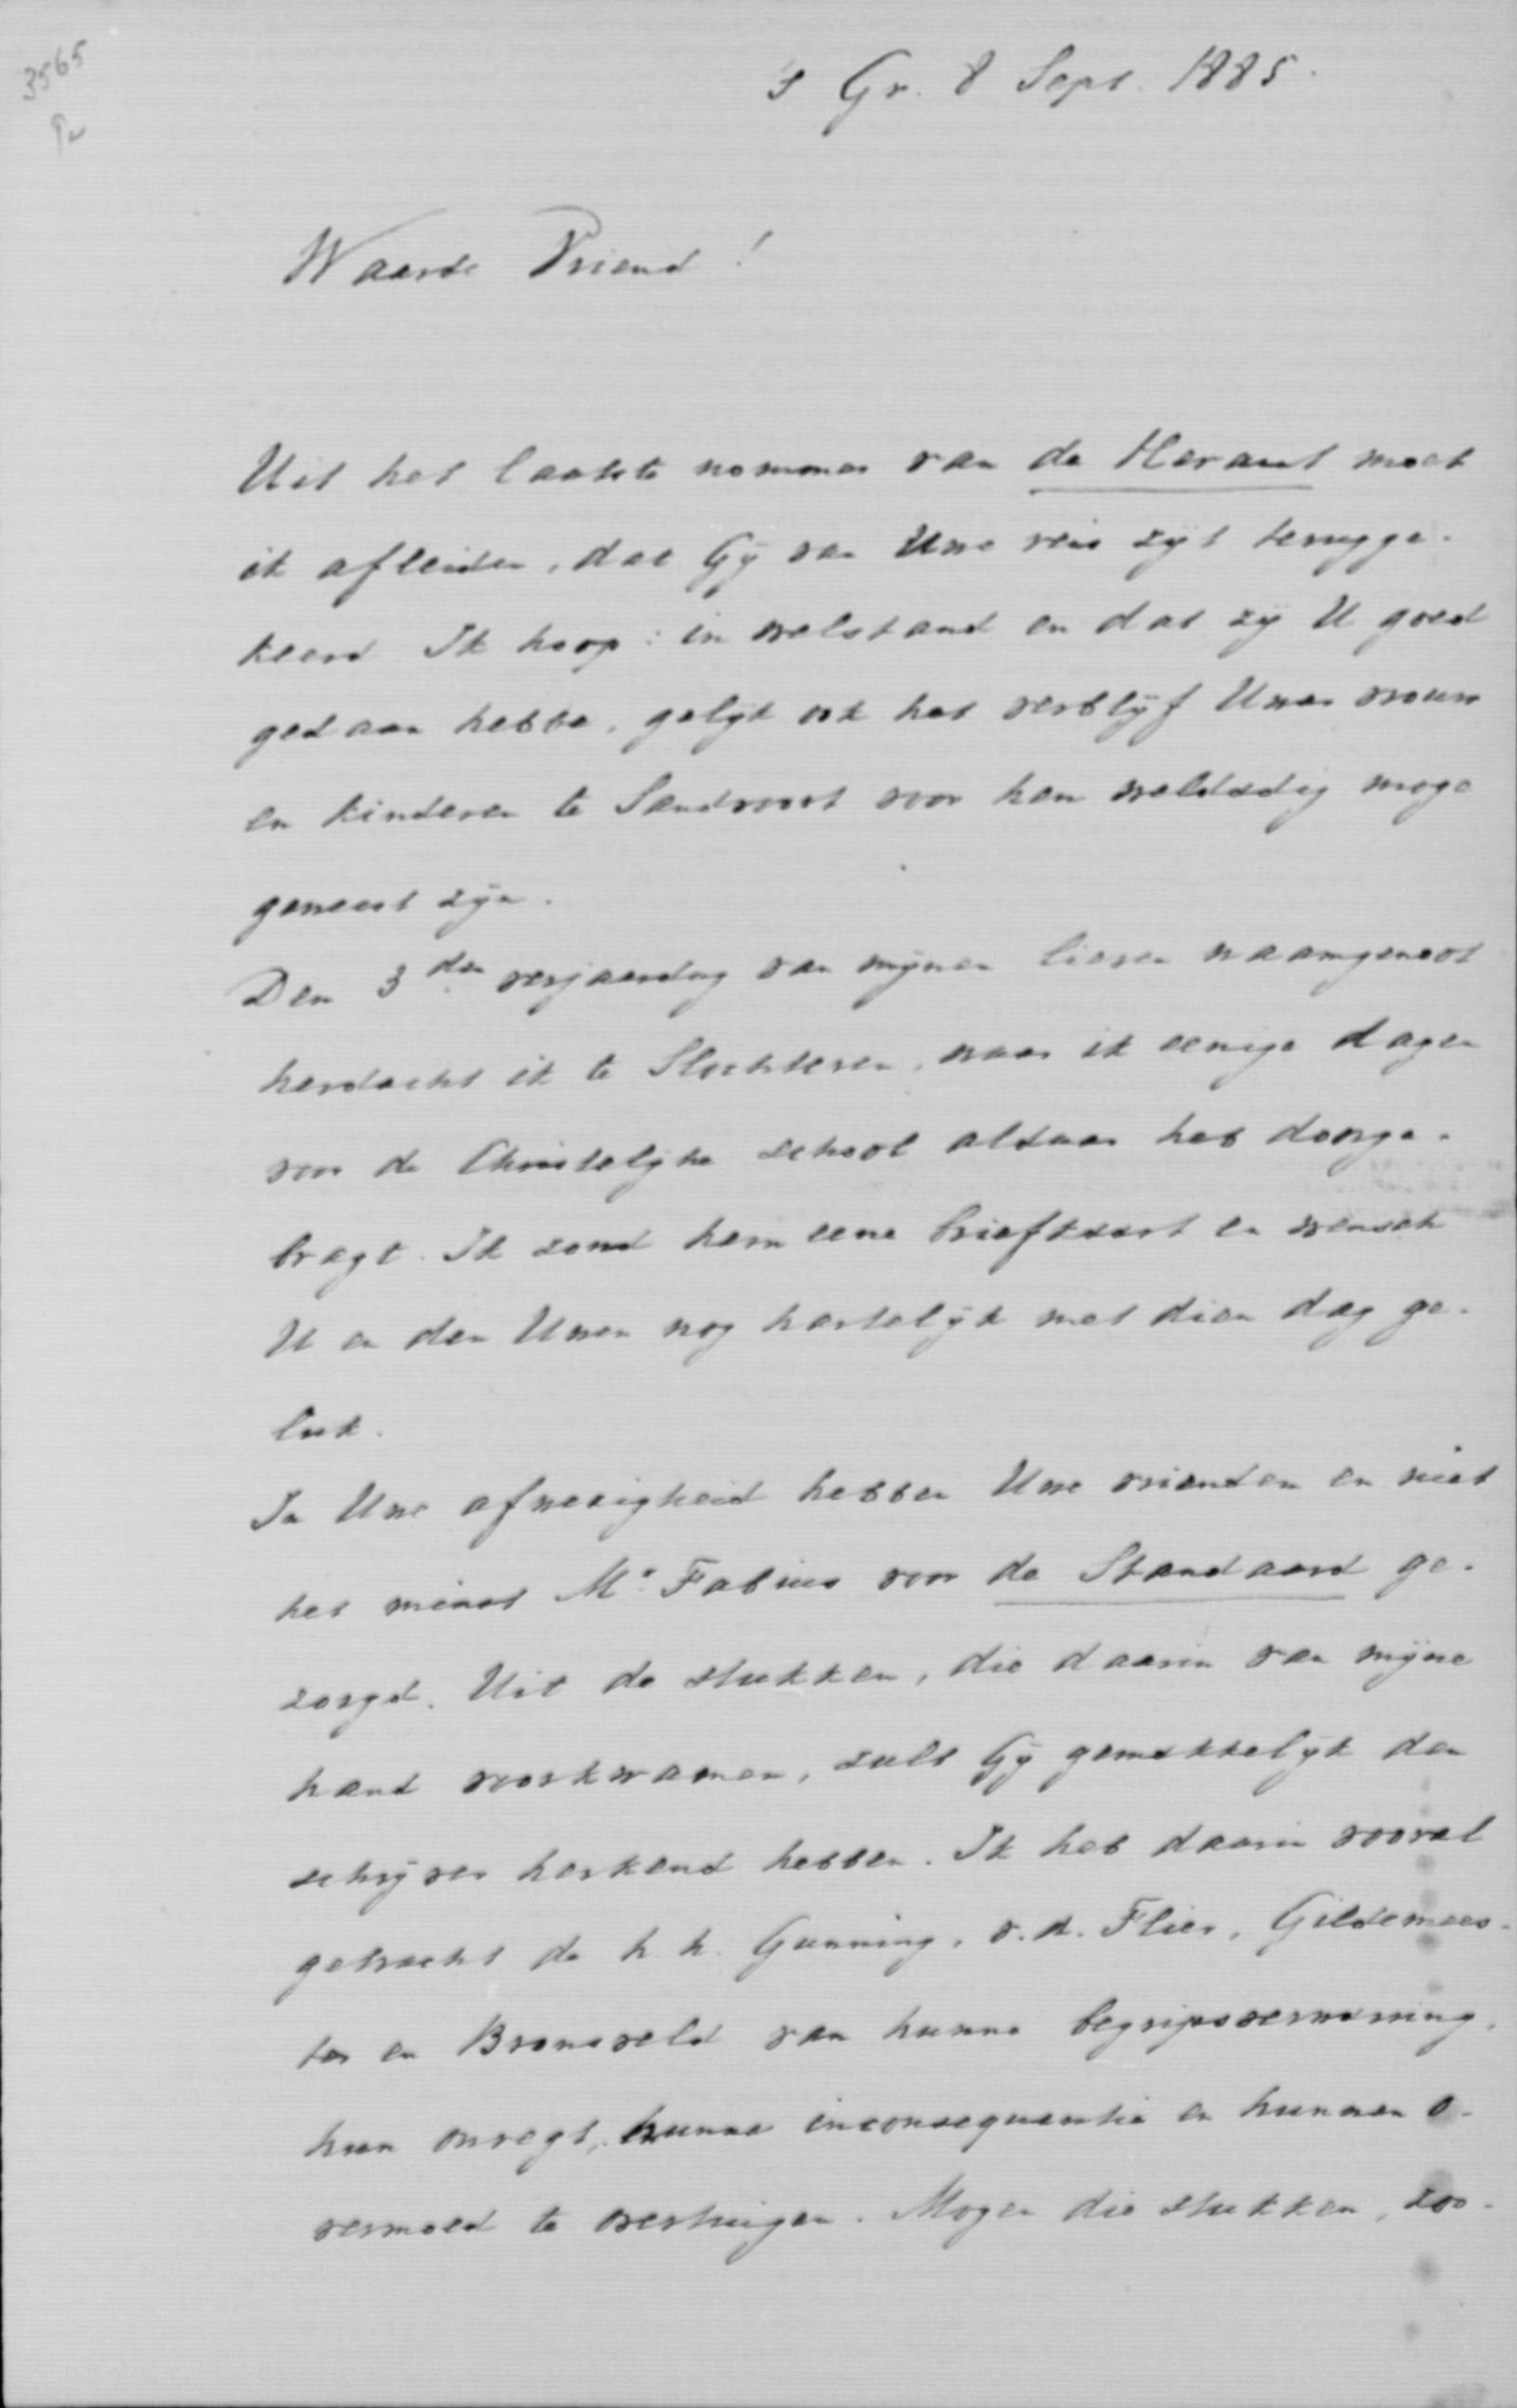 3565
's Gr. 8 Sept. 1885.
Waarde Vriend!
Uit het laatste nommer van de Heraut moet
ik afleiden, dat Gij van Uwe reis zijt terugge-
keerd. Ik hoop: in welstand en dat zij U goed
gedaan hebbe, gelijk ook het verblijf Uwer vrouw
en kinderen te Sandvoort voor hen weldadig moge
geweest zijn.
Den 3den verjaardag van mijnen lieven naamgenoot
herdacht ik te Slochteren, waar ik eenige dagen
voor de Christelijke school aldaar heb doorge-
bragt. Ik zond hem eene briefkaart en wensch
U en den Uwen nog hartelijk met dien dag ge-
luk.
In Uwe afwezigheid hebben Uwe vrienden en niet
het minst Mr. Fabius voor de Standaard ge-
zorgd. Uit de stukken, die daarin van mijne
hand voorkwamen, zult Gij gemakkelijk den
schrijver herkend hebben. Ik heb daarin vooral
getracht de h h. Gunning, v. d. Flier, Gildemees-
ter en Bronsveld van hunne begripsverwarring,
hun onregt, hunne inconsequentie en hunnen o-
vermoed te overtuigen. Mogen die stukken, zoo-